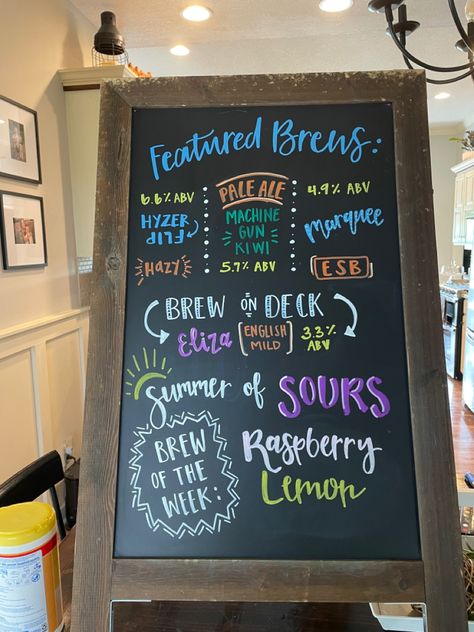 Featured Brews:
6.6% ABV
HYZER
FLIP
HAZY
PALE ALE
MACHINE
GUN
KIWI
5.7% ABV
4.9% ABV
Marquee
ESB
BREW ON DECK
Eliza
ENGLISH
MILD
3.3%
ABV
Summer of SOURS
BREW
OF THE
WEEK:
Raspberry
Lemon